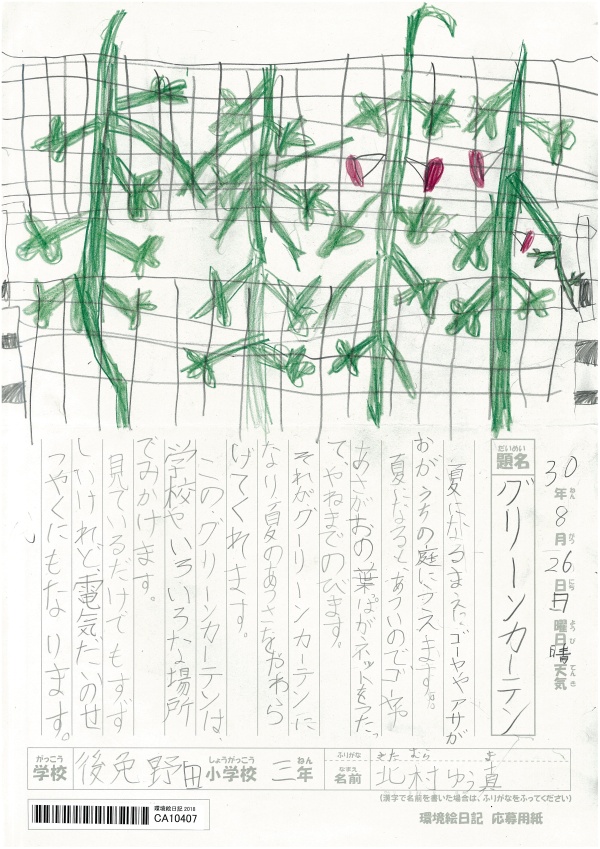 30年8月26日日曜日晴天気
ねん がつ にち ようび てんき
だいめい
題名 グリーンカーテン
夏になるまえ、ゴーヤやアサが
おが、うちの庭にうえます。
夏になるとあついのでゴーヤや
あさがおの葉っぱがネットをつたっ
て、やねまでのびます。
それがグーリーンカーテンに
なり夏のあつさをやわら
げてくれます。
この・グリーンカーテンは、
学校やいろいろな場所
でみかけます。
見ているだけでもすず
しいけれど、電気だいのせ
つやくにもなります。
がっこう しょうがっこう ねん
学校 後免野田小学校 三年
ふりがな きたむら ま
なまえ
名前 北村ゆう真
(漢字で名前を書いた場合は、ふりがなをふってください)
環境絵日記 2018
CA10407
環境絵日記 応募用紙